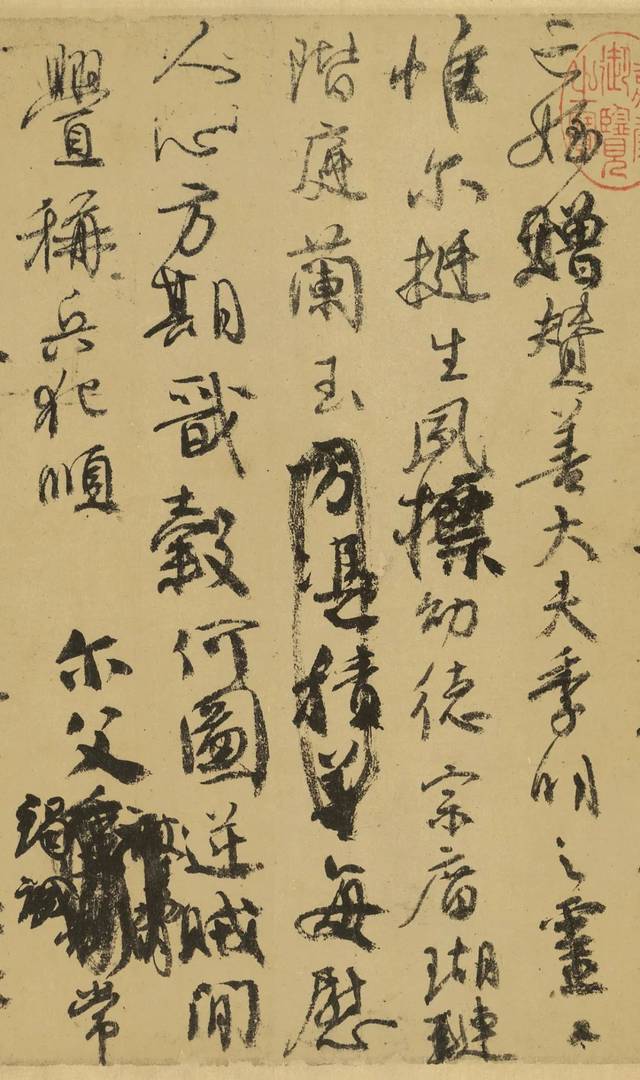 亡姪贈贊善大夫季明之靈曰
惟尔挺生夙標幼德宗廟瑚璉
階庭蘭玉方憑積善每慰
人心方期戩穀何圖逆賊閒
舋稱兵犯順 尔父竭誠常
御覽